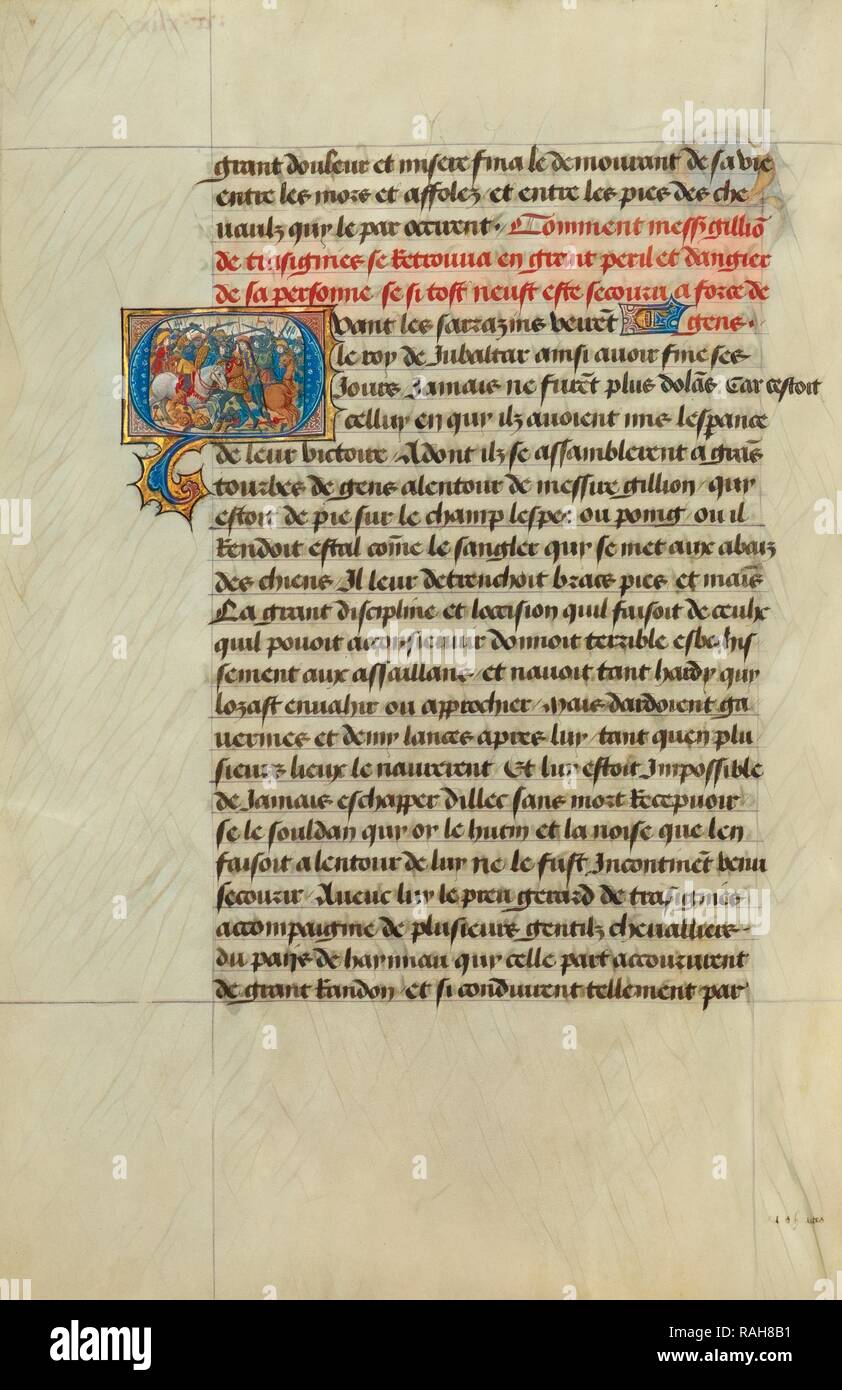 grant douleur et misere fina le demourant de sa vie
entre les mors et affolez et entre les pies des che
uaulz quy le par occirent. Comment mess gilliõ
de trasignies se Retrouua en grant peril et dangier
de sa personne se si tost neust este secouru a force de
Quant les sarrazins veirẽt gens.
le roy de Jubaltar ainsi auoir fine ses
Jours Jamais ne furẽt plus dolãs Car cestoit
celluy en quy ilz auoient mis lesperance
de leur victoire Adont ilz se assamblerent a grãs
tourbes de gens alentour de messire gillion quy
estoit de pie sur le champ lespee ou poing ou il
Rendoit estal cõme le sanglier quy se met aux abaiz
des chiens Il leur detrenchoit bracs pies et mais
La grant discipline et loccision quil faisoit de ceulx
quil pouoit aconsieuuir donnoit terrible esbahis
sement aux assaillans et nauoit tant hardy quy
lozast enuahir ou approchier Mais dardoient ga
uermes et demy lances apres luy tant quen plu
sieurs lieux le naurerent Et luy estoit Impossible
de Jamais eschapper dillec sans mort Recepuoir
se le souldan quy oy le hutin et la noise que len
faisoit alentour de luy ne le fust Incontinẽt venu
secourir Auec luy le preu gerard de trasignies
accompaignie de plusieurs gentilz cheualliers
du paijs de haynnau quy celle part accoururent
de grant Randon et si cõduirent tellement par
alamy
www.alamy.com
RAH8B1